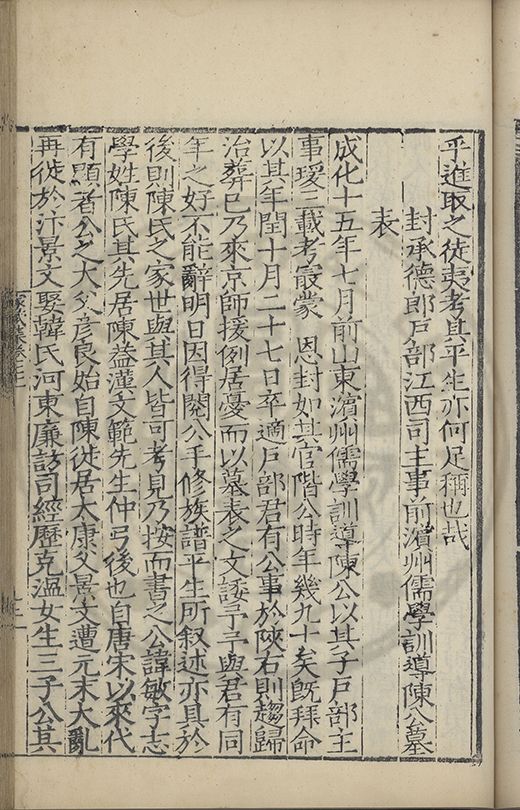 乎進取之徒夷考其平生亦何足稱也哉
封承德郎戶部江西司主事前濱州儒學訓導陳公墓
表
成化十五年七月前山東濱州儒學訓導陳公以其子戶部主
事瑗三載考最蒙 恩封如其官階公時年幾九十矣旣拜命
以其年閏十月二十七日卒適戶部君有公事於陝右則趨歸
治葬已乃來京師援例居憂而以墓表之文諉予予與君有同
年之好不能辭明日因得閱公手修族譜平生所叙述亦具於
後則陳氏之家世與其人皆可考見乃按而書之公諱敏字志
學姓陳氏其先居陳益漢文範先生仲弓後也自唐宋以來代
有顯者公之大父彥良始自陳徙居太康父景文遭元末大亂
再徙於汴景文娶韓氏河東廉訪司經歷克溫女生三子公其